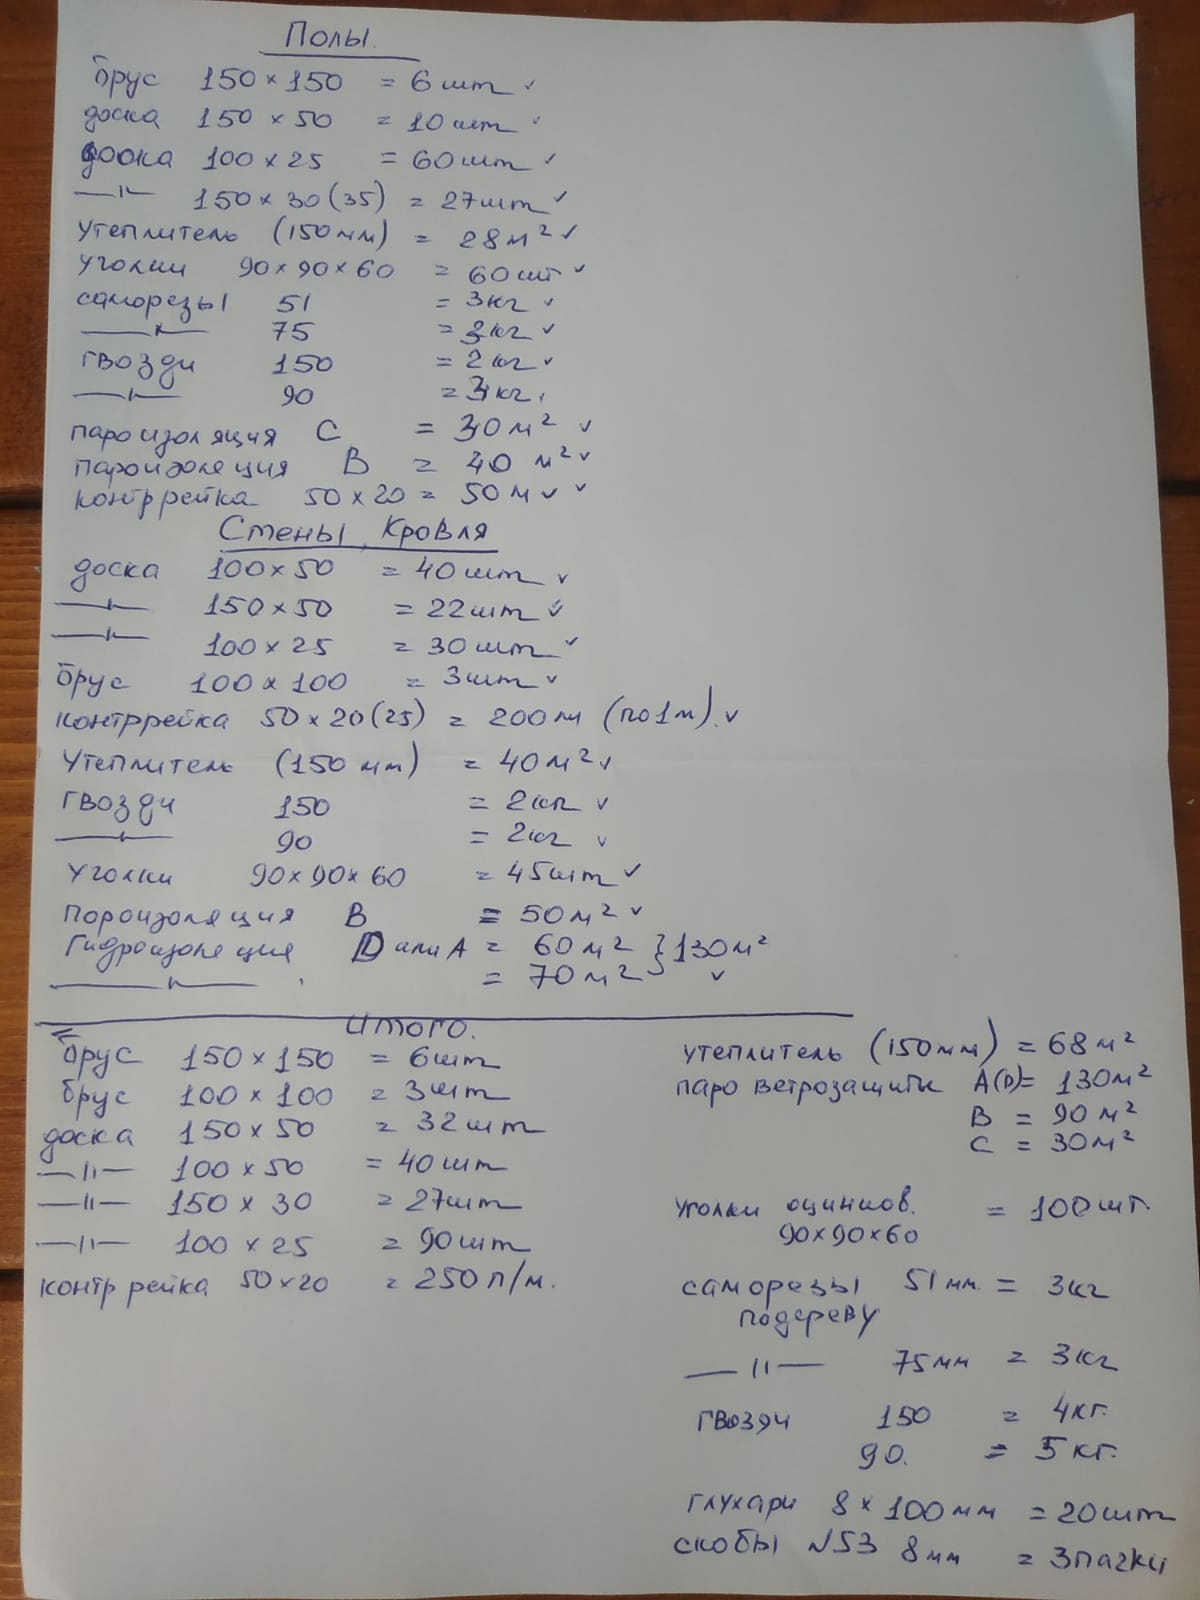 Полы.
брус 150×150 = 6шт ✓
доска 150×50 = 10шт ✓
доска 100×25 = 60шт ✓
—"— 150×30(35) = 27шт ✓
утеплитель (150мм) = 28м² ✓
уголки 90×90×60 = 60шт ✓
саморезы 51 = 3кг ✓
—"— 75 = 3кг ✓
гвозди 150 = 2кг ✓
—"— 90 = 3кг.
пароизоляция С = 30м² ✓
пароизоляция В = 40 м² ✓
контррейка 50×20 = 50м ✓ ✓
Стены, Кровля
доска 100×50 = 40шт ✓
—"— 150×50 = 22шт ✓
—"— 100×25 = 30шт ✓
брус 100×100 = 3шт ✓
контррейка 50×20(25) = 200м (по1м). ✓
Утеплитель (150мм) = 40м² ✓
гвозди 150 = 2кг ✓
—"— 90 = 2кг ✓
уголки 90×90×60 = 45шт ✓
пороизоляция В = 50м² ✓
Гидроизоляция D или А = 60м² } 130м²
—"— = 70м² ✓
Итого.
брус 150×150 = 6шт
брус 100×100 = 3шт
доска 150×50 = 32шт
—"— 100×50 = 40шт
—"— 150×30 = 27шт
—"— 100×25 = 90шт
контррейка 50×20 = 250п/м.
утеплитель (150мм) = 68м²
паро ветрозащиты А(D)= 130м²
В = 90м²
С = 30м²
уголки оцинков. = 100шт.
90×90×60
саморезы 51мм. = 3кг
подереву
—"— 75мм = 3кг
гвозди 150 = 4кг.
90. = 5кг.
глухари 8×100мм = 20шт
скобы №53 8мм = 3пачки